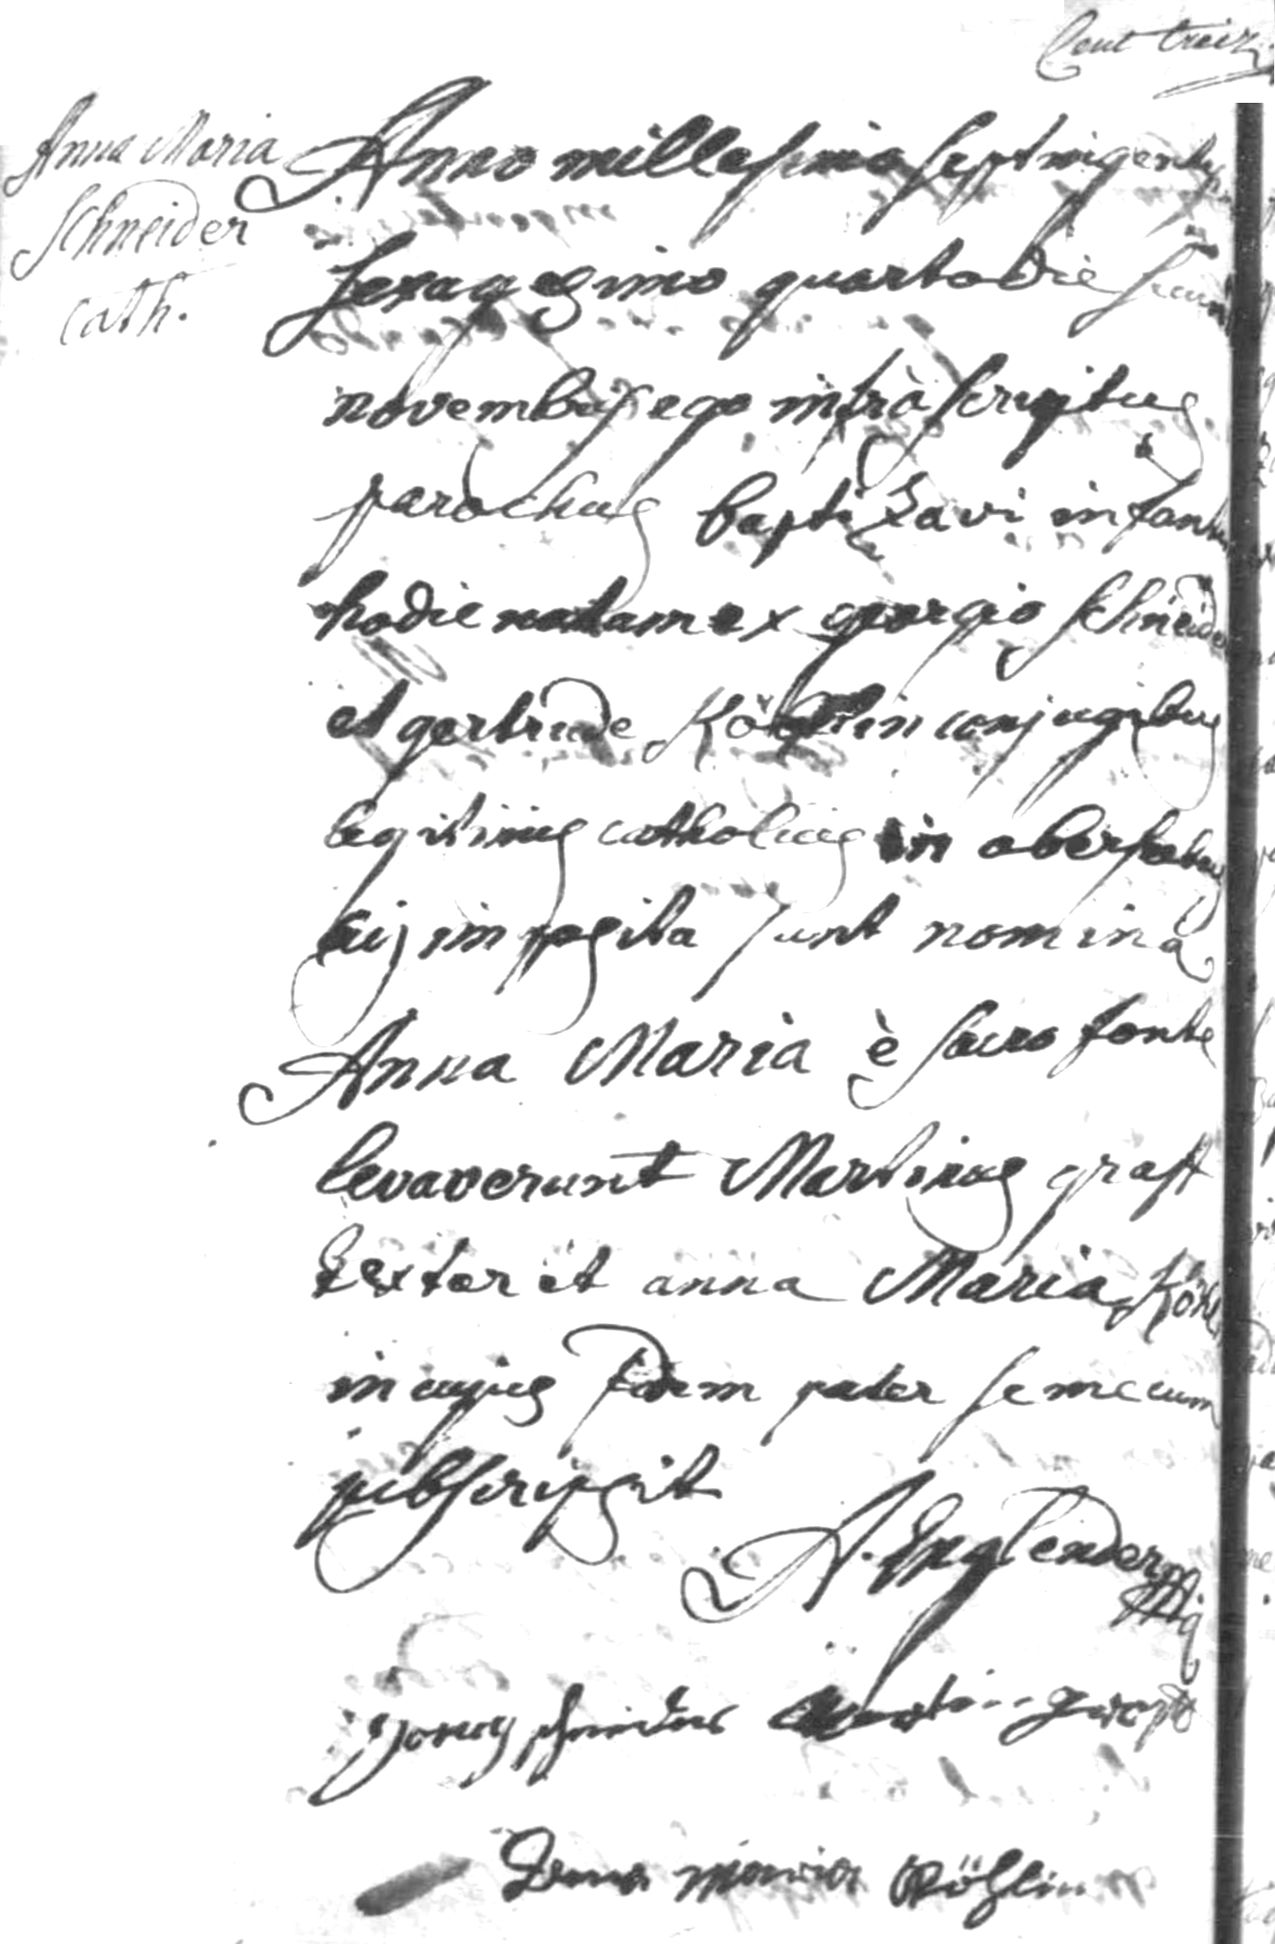 Cent treiz
Anna Maria
Schneider
cath.
Anno millesimo septingentes
sexagesimo quarto die secun
novembris ego infrà scriptus
parochus baptizavi infant
hodie natam ex georgio schneide
et gertrude Köhlin conjugibus
legitimis catholicis in
eij imposita sunt nomina
Anna Maria è sacro fonte
levaverunt Martinus graff
textor et anna Maria Köhl
in cujus fidem pater se mecum
subscripsit
A. Englender
schneider Martin
Anna maria Köhlin